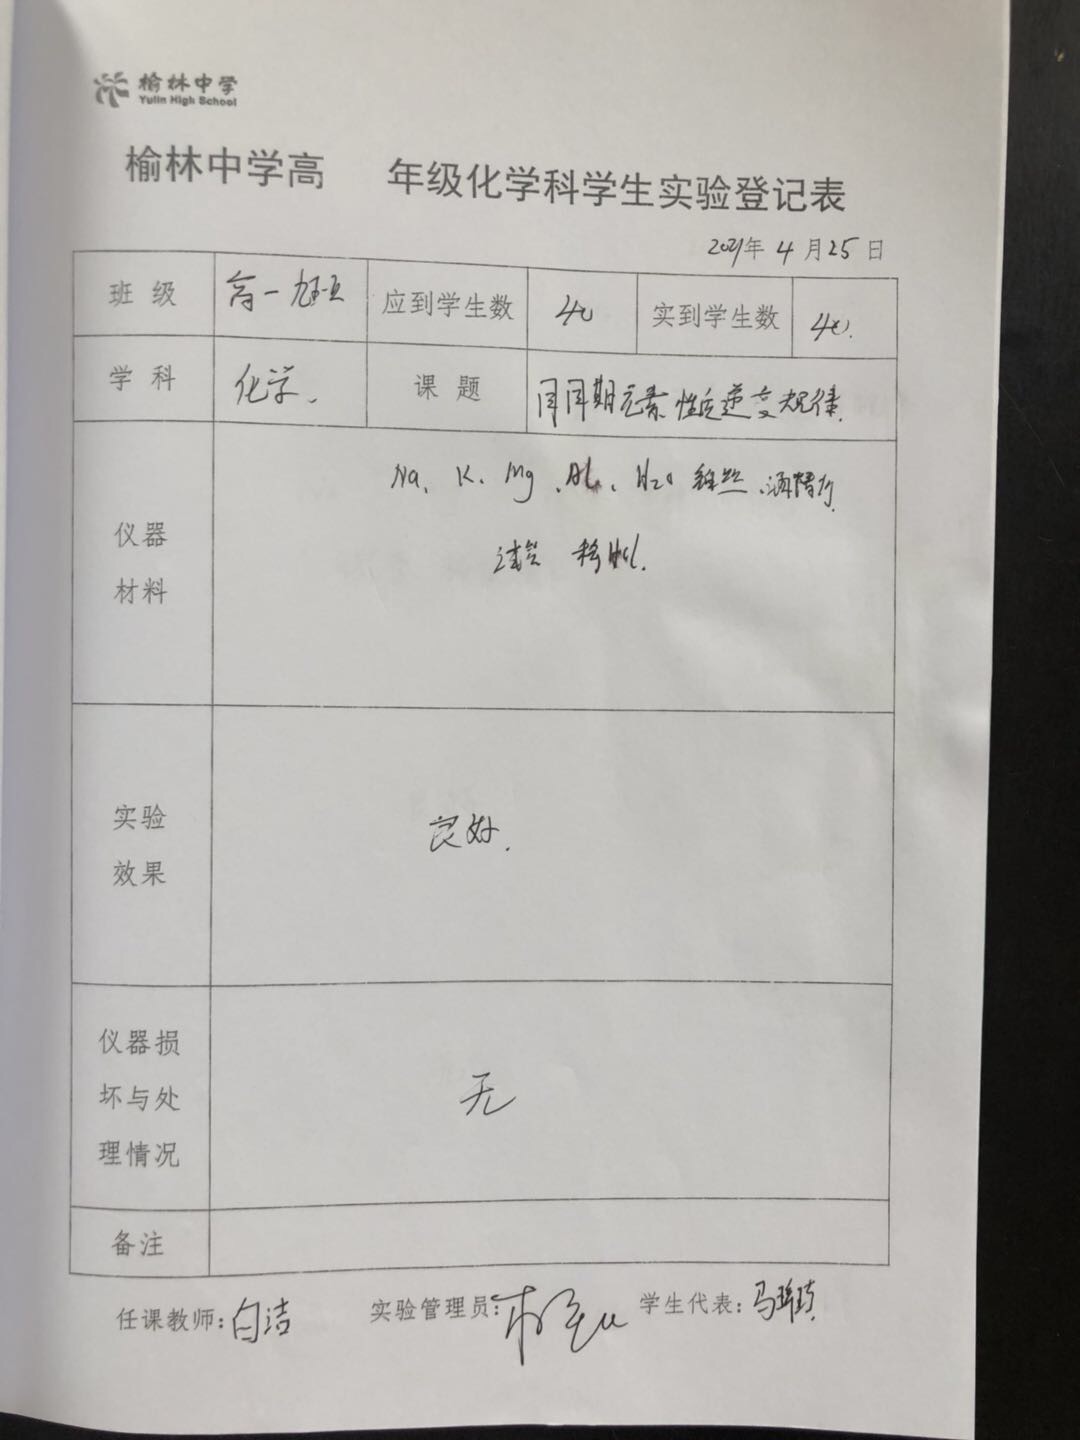 榆林中学
Yulin High School
榆林中学高 年级化学科学生实验登记表
2021年 4 月 25 日
班 级 高一 应到学生数 40 实到学生数 40.
学 科 化学. 课 题 同周期元素性质递变规律.
仪器
材料
Na、K、Mg、Al、H₂O
试管 稀HCl.
实验
效果
良好.
仪器损
坏与处
理情况
无
备注
任课教师: 白洁 实验管理员: 学生代表: 马